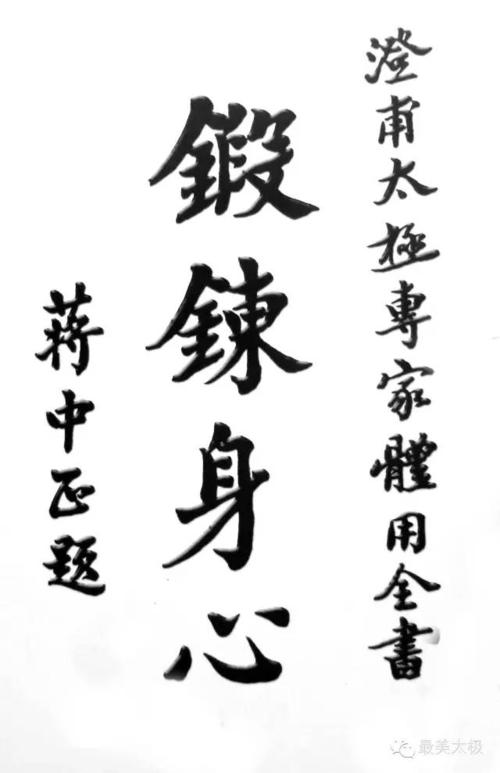 澄甫太極專家體用全書
鍛鍊身心
蔣中正題
最美太极